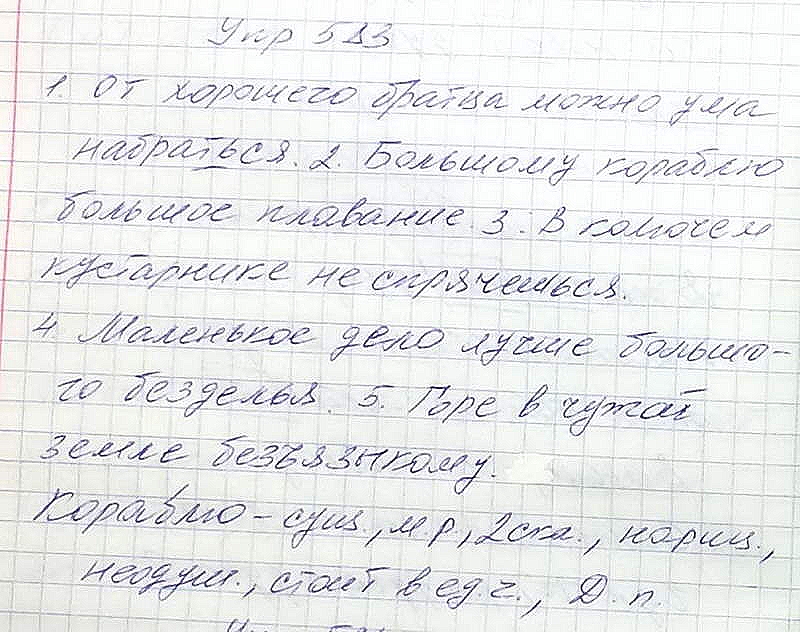 Упр 583
1. От хорошего братца можно ума
набраться. 2. Большому кораблю
большое плавание. 3. В колючем
кустарнике не спрячешься.
4. Маленькое дело лучше большо-
го безделья. 5. Горе в чужой
земле безъязыкому.
Кораблю - сущ., м.р., 2скл., нариц.,
неодуш., стоит в ед.ч., Д.п.